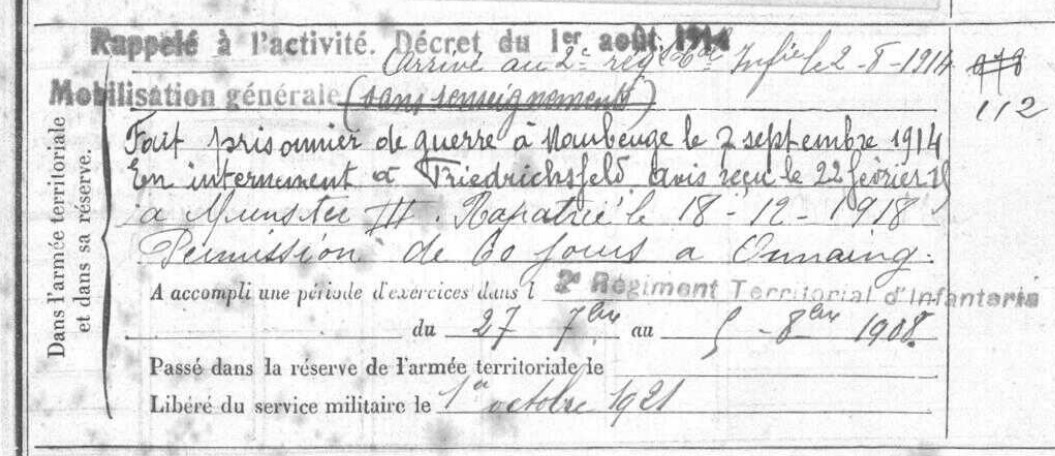 Rappelé à l'activité. Décret du 1er août 1914
Arrivé au 2e rég Ter Infie le 2-8-1914
Mobilisation générale (sans renseignements)
112
Fait prisonnier de guerre à Maubeuge le 7 septembre 1914
En internement à Friedrichsfeld avis reçu le 22 février 15
à Munster III. Rapatrié le 18-12-1918
Permission de 60 jours à Onnaing.
A accompli une période d'exercices dans l 2e Régiment Territorial d'Infanterie
du 27 7bre au 5-8bre 1908.
Passé dans la réserve de l'armée territoriale le
Libéré du service militaire le 1er octobre 1921
Dans l'armée territoriale
et dans sa réserve.